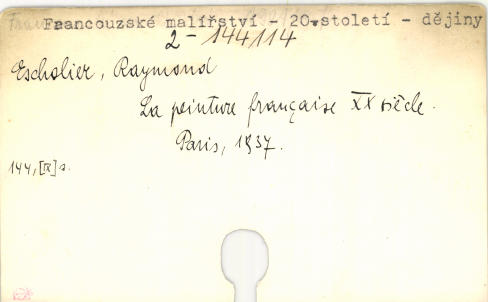 Francouzské malířství - 20.století - dějiny
2-144114
Escholier, Raymond
La peinture française XX siècle.
Paris, 1937.
144,[IX]s.